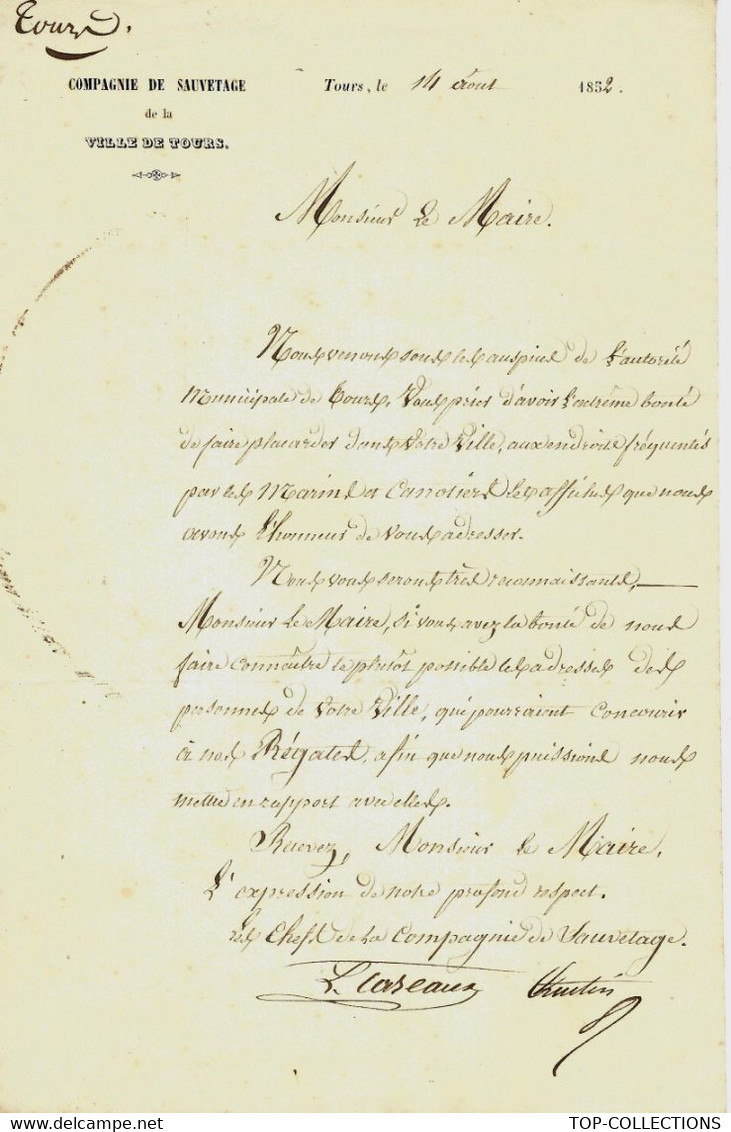 Tours.
COMPAGNIE DE SAUVETAGE
de la
VILLE DE TOURS.
Tours, le 14 août 1852.
Monsieur Le Maire.
Nous venons sous les auspices de l'autorité
Municipale de Tours, Vous prier d'avoir l'extrême bonté
de faire placarder dans Votre Ville, aux endroits fréquentés
par les Marins et Canotiers les affiches que nous
avons l'honneur de vous adresser.
Nous vous serons très reconnaissants,
Monsieur Le Maire, si vous avez la bonté de nous
faire connaître le plutôt possible les adresses des
personnes de Votre Ville, qui pourraient concourir
à nos Régates, afin que nous puissions nous
mettre en rapport avec elles.
Recevez, Monsieur le Maire,
L'expression de notre profond respect.
Les Chefs de la Compagnie de Sauvetage.
L. Careaux
TOP-COLLECTIONS